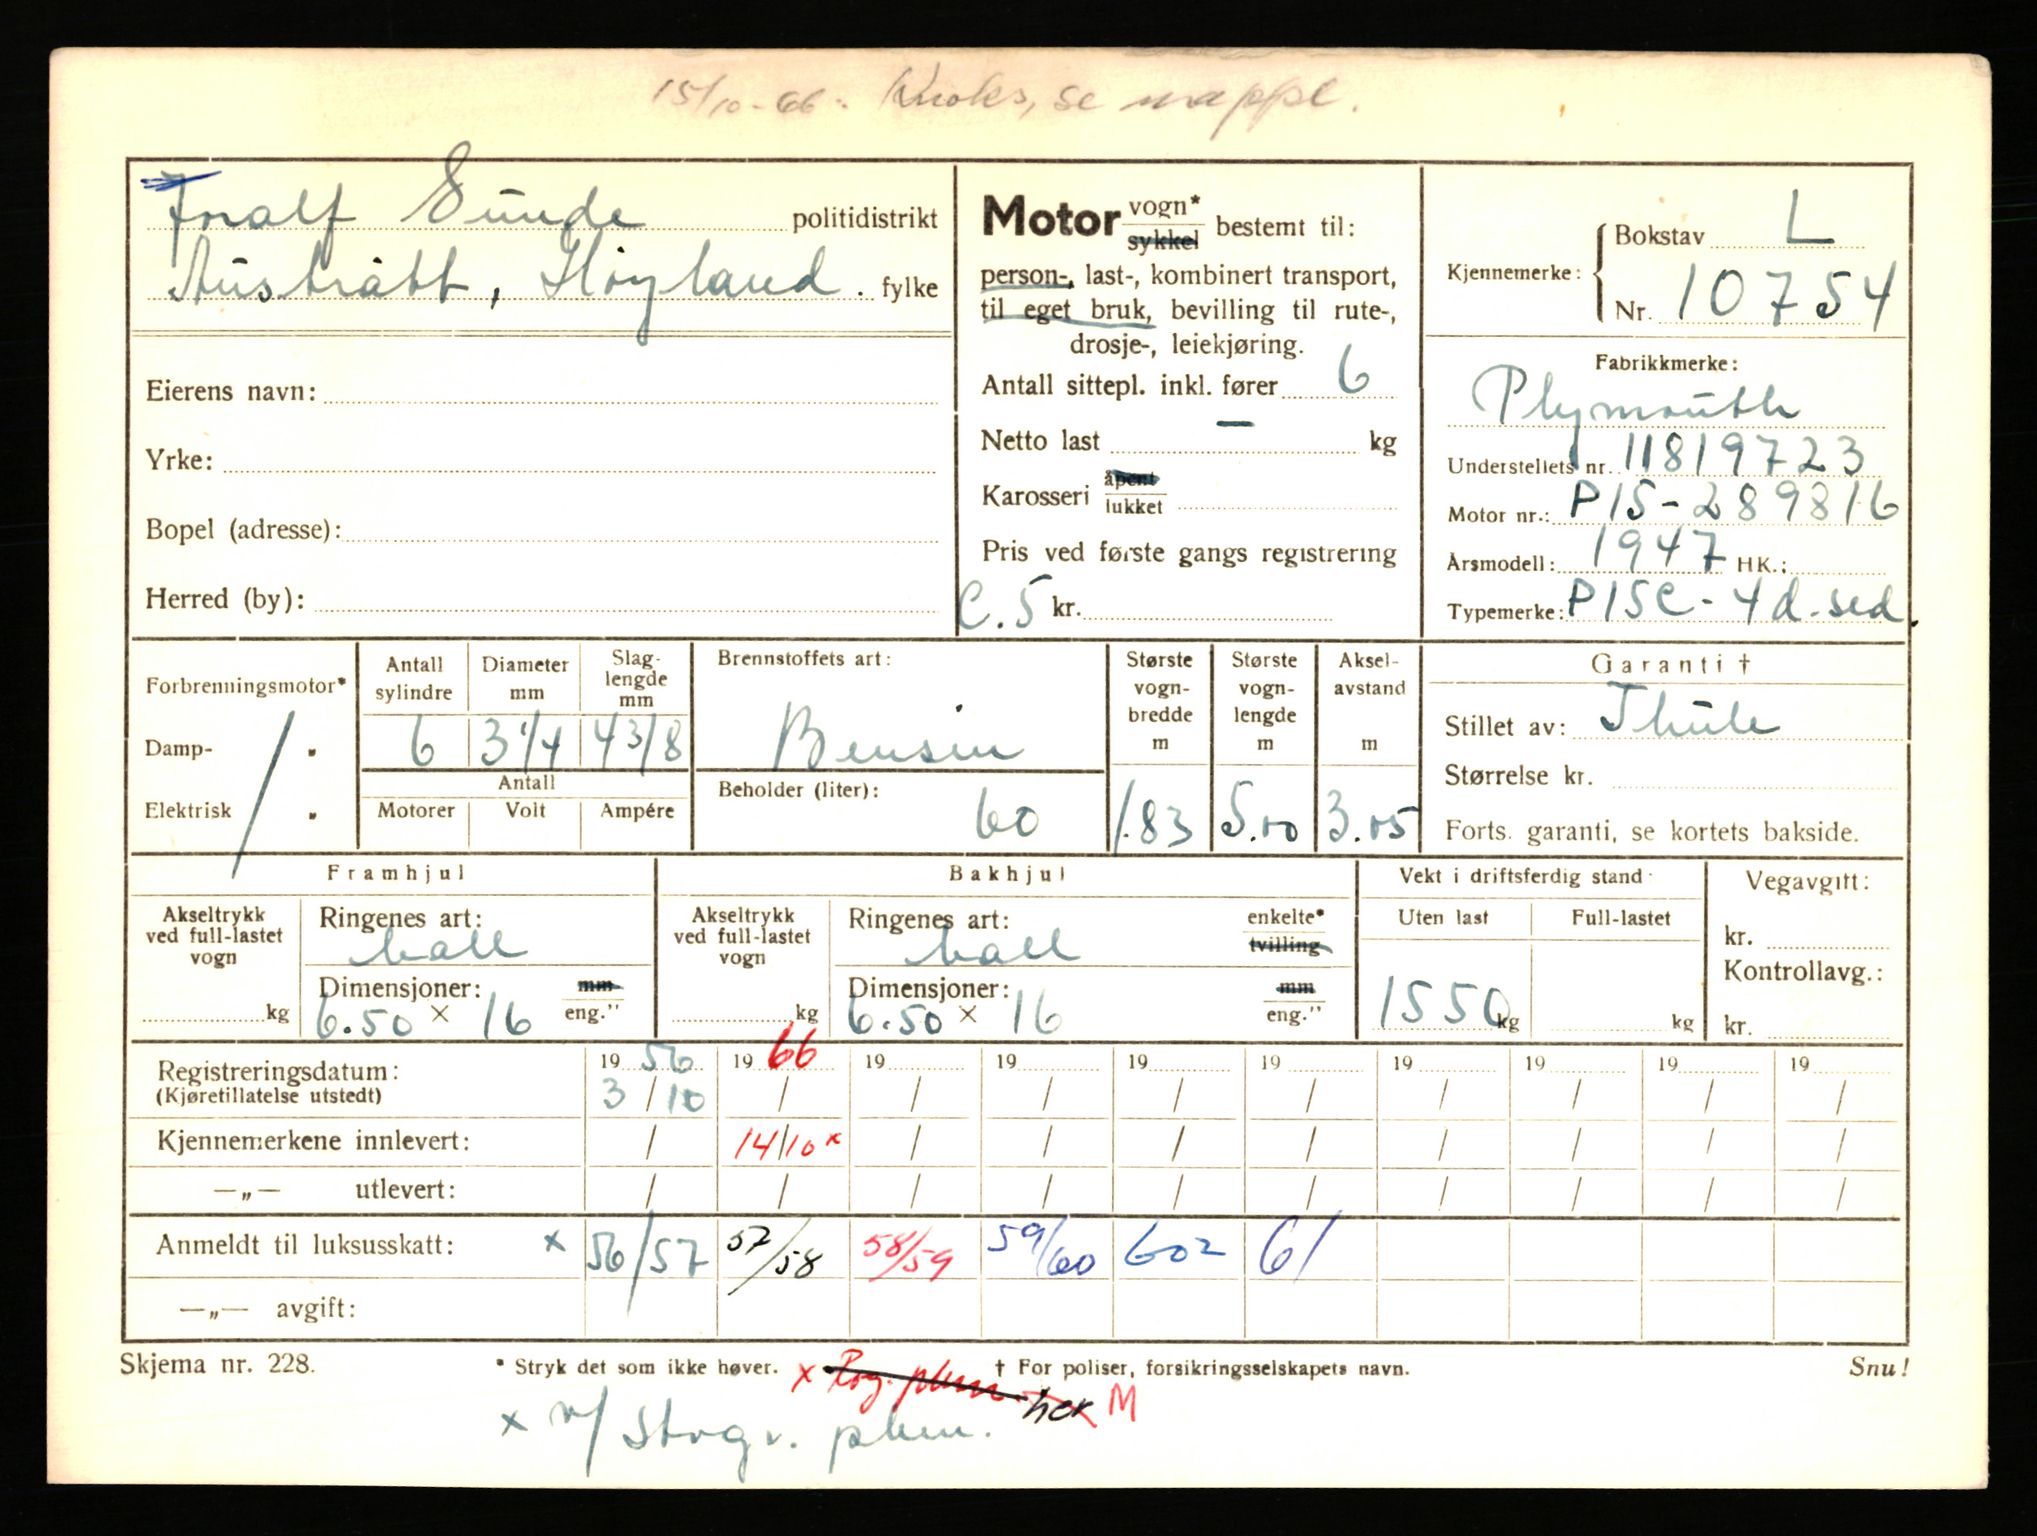 15/10-66. se mappe.
Sunde politidistrikt
Austrått, Høyland. fylke
Eierens navn:
Yrke:
Bopel (adresse):
Herred (by):
Motor vogn* sykkel bestemt til:
person-, last-, kombinert transport,
til eget bruk, bevilling til rute-,
drosje-, leiekjøring.
Antall sittepl. inkl. fører 6
Netto last — kg
Karosseri åpent lukket
Pris ved første gangs registrering
C.5 kr.
Kjennemerke: Bokstav L
Nr. 10754
Fabrikkmerke:
Plymouth
Understellets nr. 11819723
Motor nr.: P15-289816
Årsmodell: 1947 HK.:
Typemerke: P15C-4d.sed.
Forbrenningsmotor*
Damp- „
Elektrisk „
Antall sylindre 6
Diameter mm 3 1/4
Slag-lengde mm 4 3/8
Antall
Motorer Volt Ampére
Brennstoffets art:
Bensin
Beholder (liter):
60
Største vogn-bredde m 1.83
Største vogn-lengde m 5.00
Aksel-avstand m 3.05
Garanti †
Stillet av: Thule
Størrelse kr.
Forts. garanti, se kortets bakside.
Framhjul
Akseltrykk ved full-lastet vogn
kg
Ringenes art:
ball
Dimensjoner: mm
6.50 x 16 eng."
Bakhjul
Akseltrykk ved full-lastet vogn
kg
Ringenes art: enkelte*
ball tvilling
Dimensjoner: mm
6.50 x 16 eng."
Vekt i driftsferdig stand
Uten last Full-lastet
1550 kg kg
Vegavgift:
kr.
Kontrollavg.:
kr.
Registreringsdatum: 19 56 19 66 19 19 19 19 19 19 19 19
(Kjøretillatelse utstedt) 3/10 / / / / / / / / /
Kjennemerkene innlevert: / 14/10 x / / / / / / / /
—„— utlevert: / / / / / / / / / /
Anmeldt til luksusskatt: x 56/57 57/58 58/59 59/60 602 61
—„— avgift:
Skjema nr. 228. * Stryk det som ikke høver. † For poliser, forsikringsselskapets navn. Snu!
x M
x